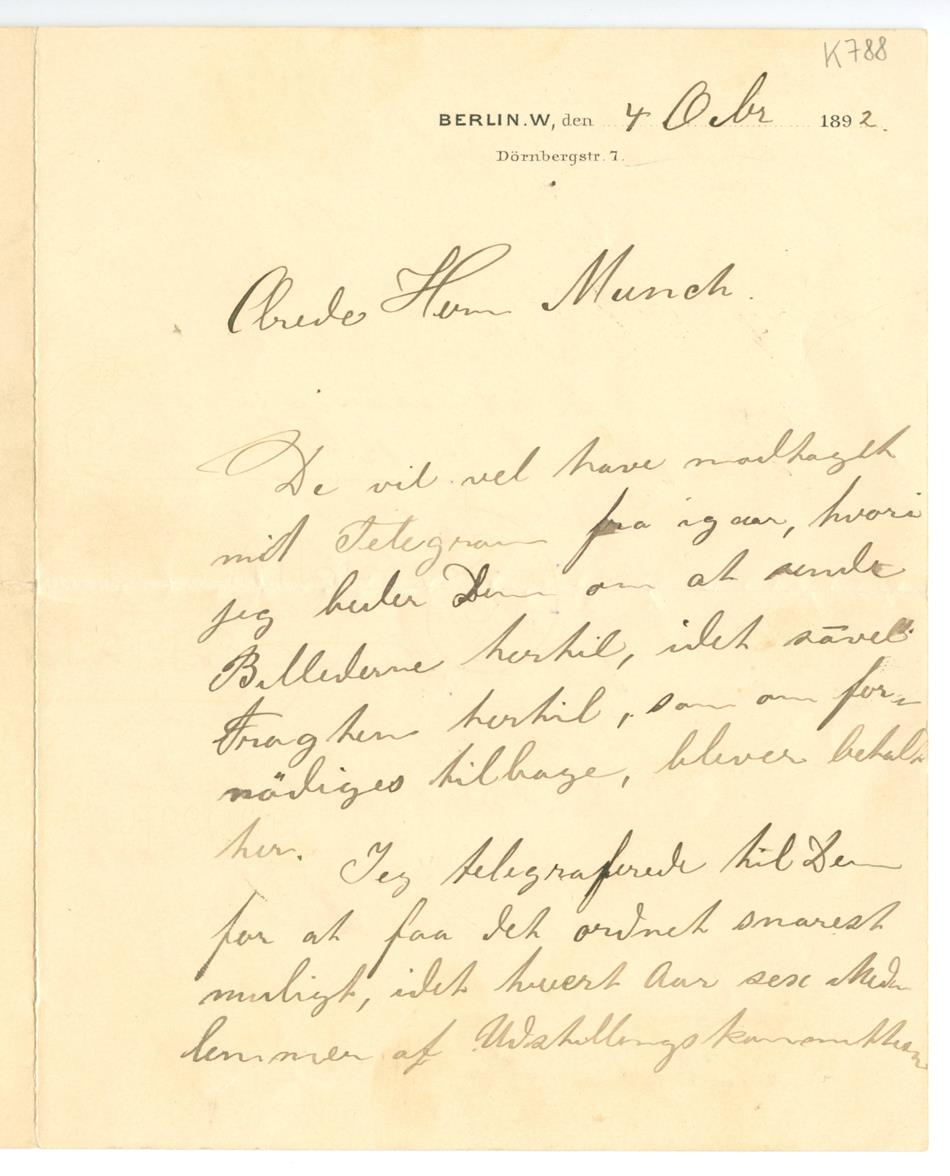 K788
BERLIN.W, den 4 Okbr 1892.
Dörnbergstr. 7.
Ærede Herr Munch.
De vil vel have modtaget
mit Telegram fra igaar, hvori
jeg beder Dem om at sende
Billederne hertil, idet såvel
Fragten hertil, som om for-
nödiges tilbage, bliver betalt
her. Jeg telegraferede til Dem
for at faa det ordnet snarest
muligt, idet hvert Aar sex Med-
lemmer af Udstillingskommitteen